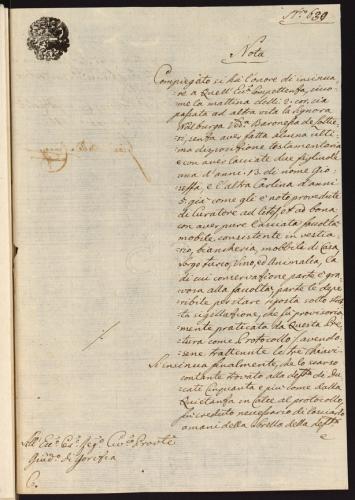 Nº 680
Nota
Compiegato si hà l'onore di insinua-
re a Quell' Eccº Competenza, sicco-
me la mattina delli 2: corr:
passata ad altra vita la Signora
Walburga Vedª Baronessa de
senza aver fatta alcuna ulti-
ma disposizione testamentoria
e con aver lasciate due figliuole
una d'anni 13 di nome Gio-
seffa, e l'altra Carlina d'anni
5 già come gl'è noto provedute
di Curatore ad lites, et ad bona
con aver pure lasciata facoltà
mobile, consistente in vestia-
rio, biancheria, mobili di Casa
sorgo turco, Vino, ed Animalia, la
di cui conservazione parte è gra-
vosa alla facoltà, parte è depe-
ribile per stare riposta sotto
sigillazione, che fu provisoria-
mente praticata da Questa Pre-
tura come Protocollo, avendo-
sene trattenute le tre chiavi
Si insinua finalmente, che lo scarso
contante trovato alla defta di Du-
cati Cinquanta e più come dalla
Quietanza in Calce al protocollo,
fu creduto necessario di lasciarlo
a mani della sorella della defta
e
All' Eccº Ces: Regº Civº Provle
Giudº di Gorizia
C.